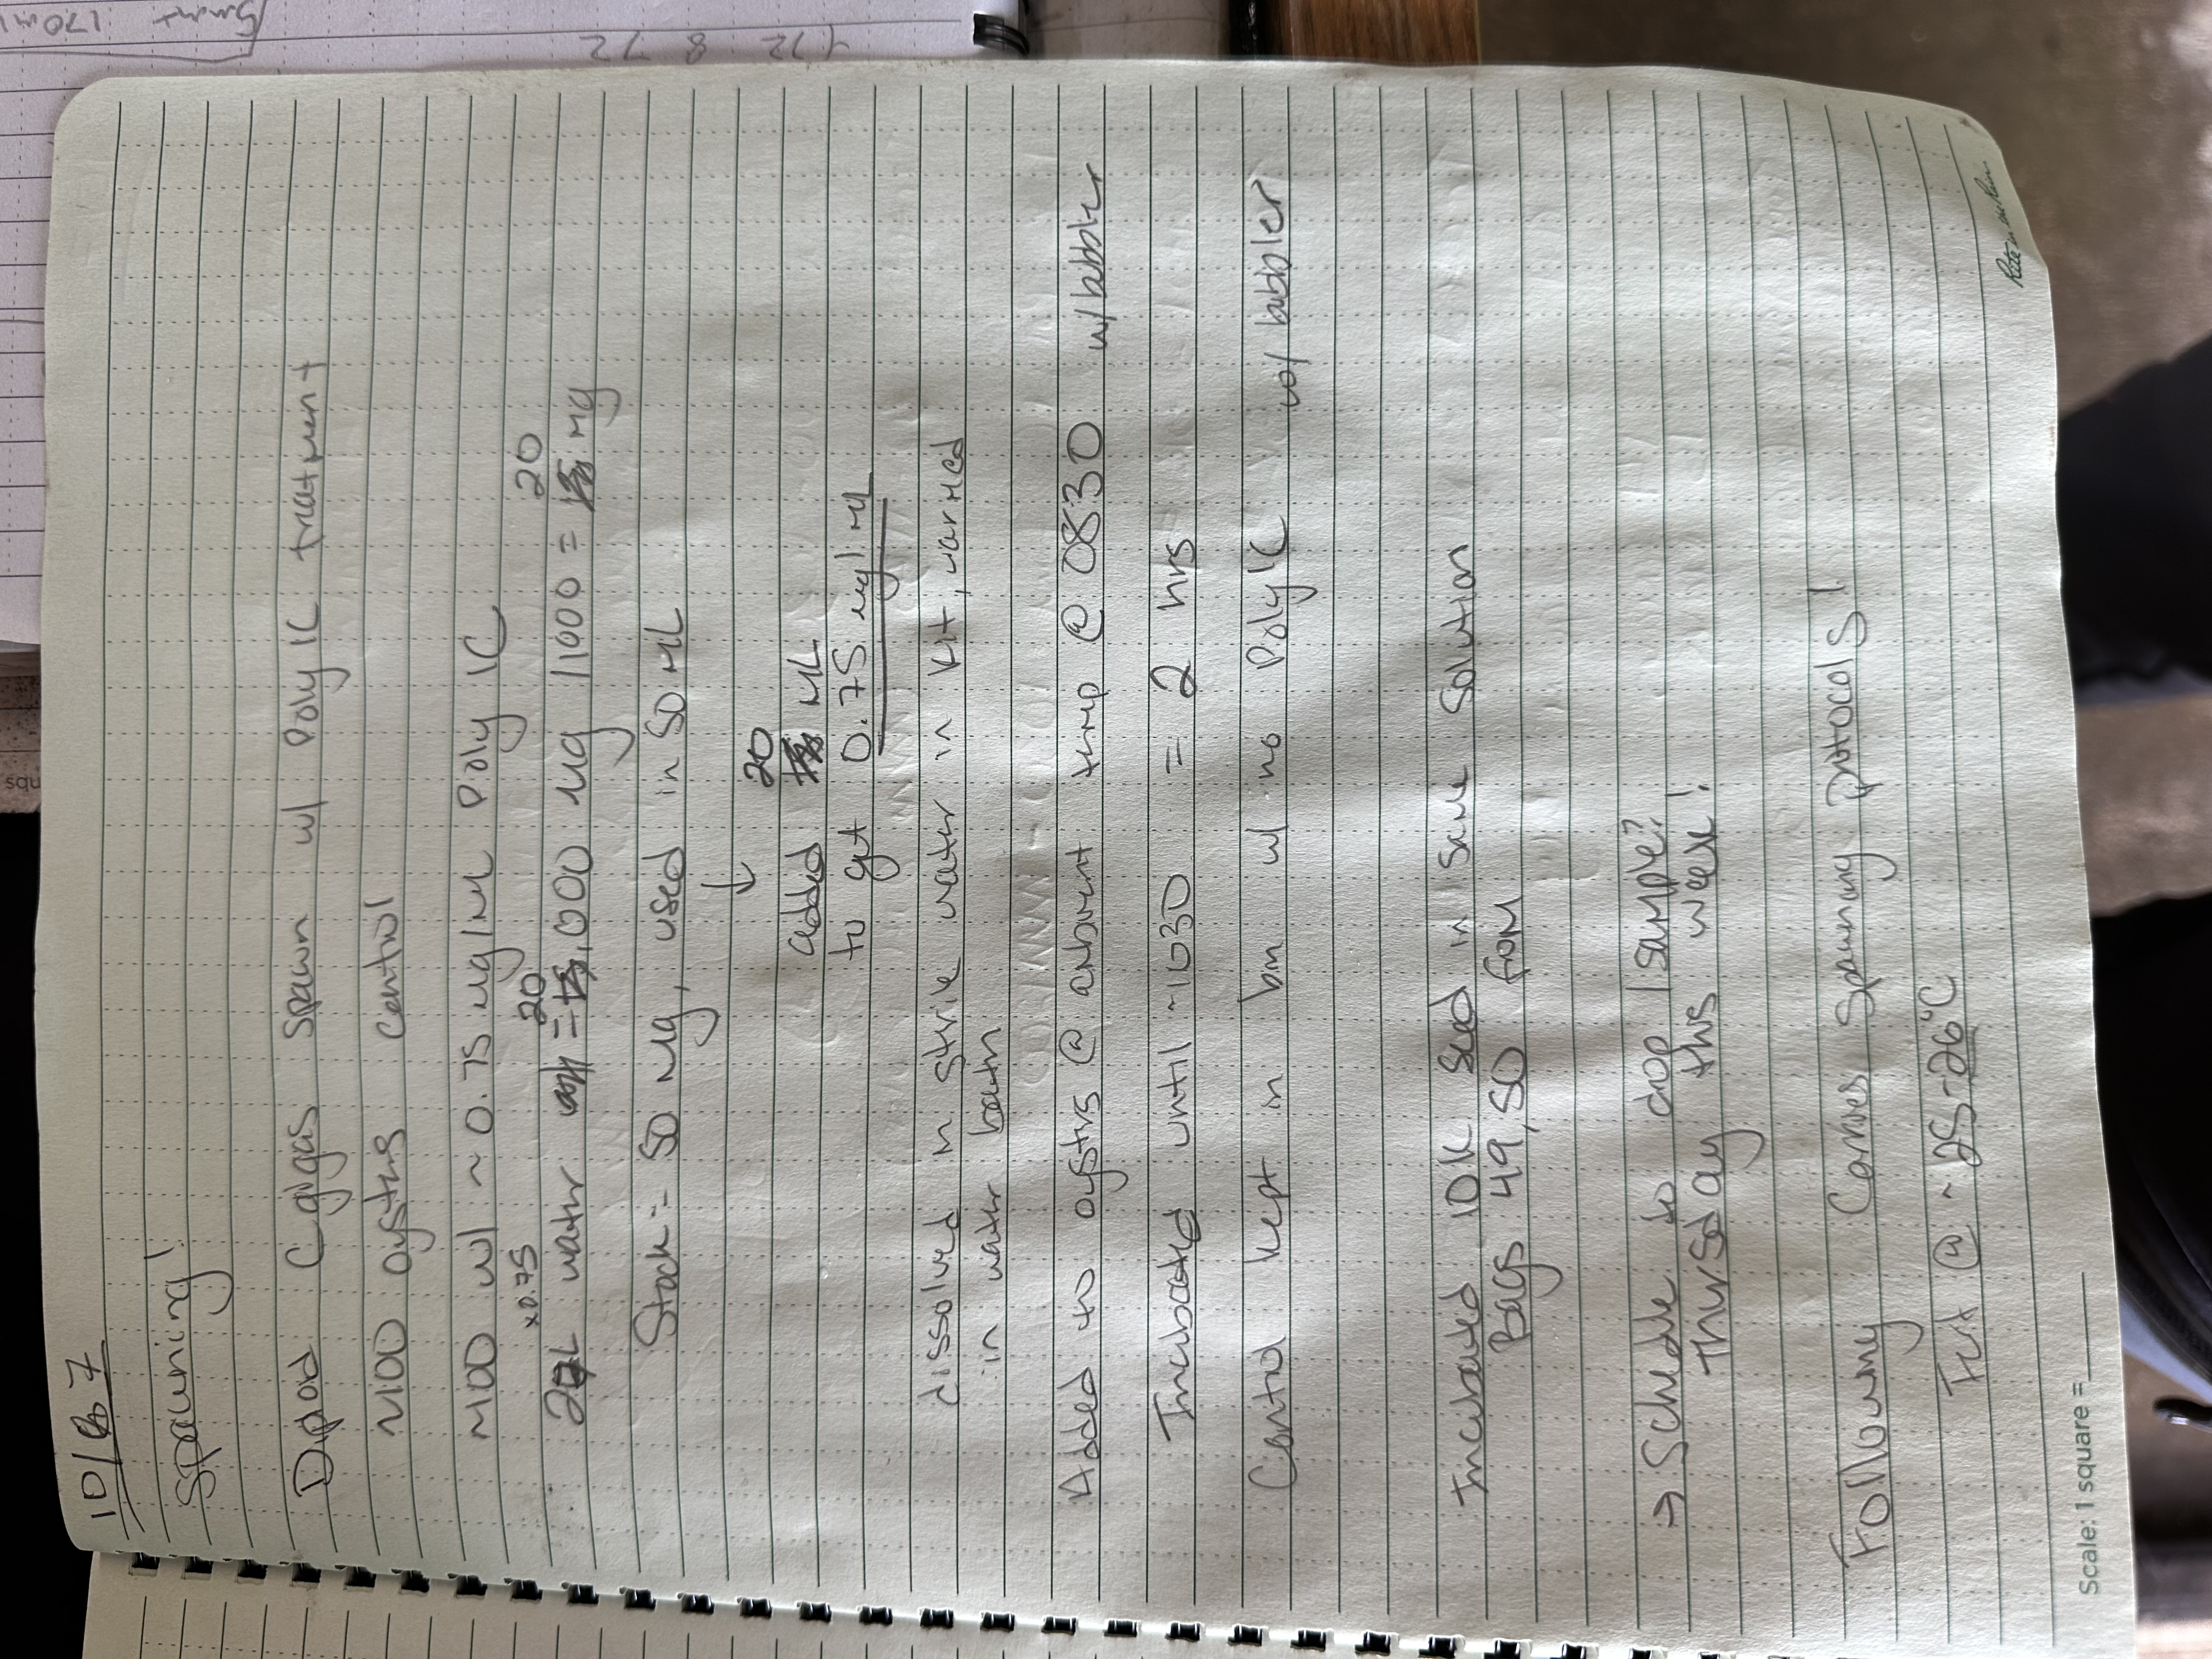 10/7
Spawning!
Diploid C gigas Spawn w/ Poly IC treatment
~100 oysters control
~100 w/ ~0.75 ug/mL Poly IC
x0.75 20 20
L water = ,000 ug /1000 = mg
Stock = 50 mg, used in 50 mL
↓
20
added mL
to get 0.75 ug/mL
dissolved in strile water in kit, warmed
in water bath
Added to oystrs @ ambient temp @ 0830 w/bubbler
Incubated until ~1030 = 2 hrs
Control kept in bin w/ no Poly IC w/ bubbler
Incubated 10K Seed in Same Solution
Bags 49, 50 from
→ Schedule to drop / sample?
Thursday this week!
Following Carries Spawning Protocols!
@ ~25-26°C
Rite in the Rain
Scale: 1 square =
5mmt 170ml
72 8 72